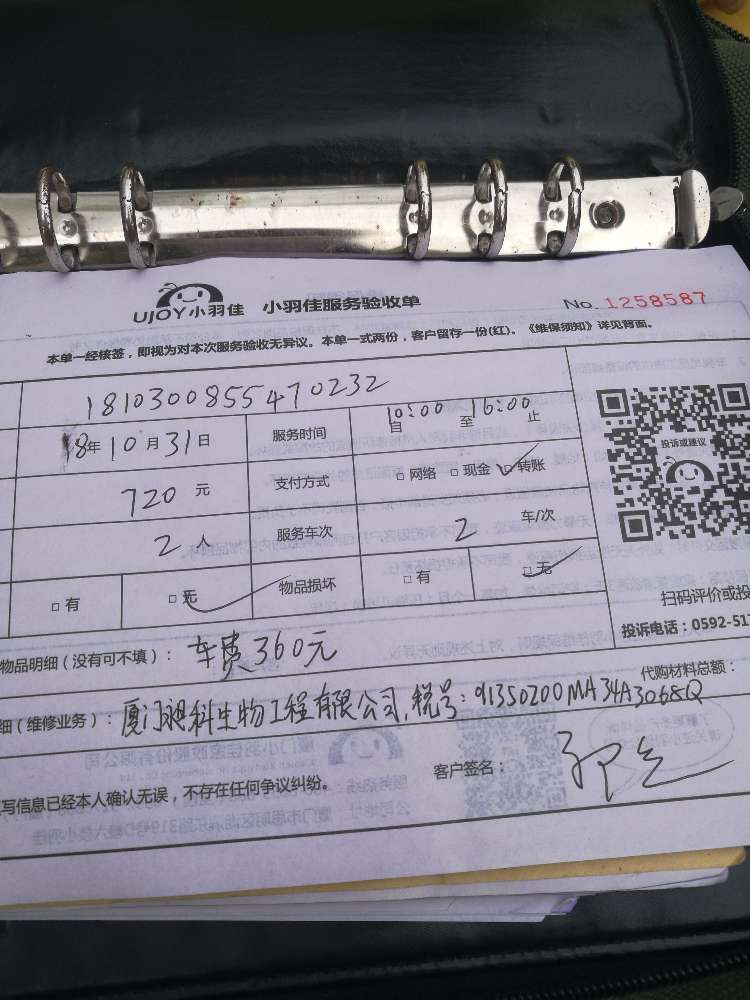 UJOY小羽佳 小羽佳服务验收单 No. 1258587
本单一经核签，即视为对本次服务验收无异议。本单一式两份，客户留存一份(红)。《维保须知》详见背面。
1810300855470232
18年10月31日 服务时间 10:00自 至 16:00止
720元 支付方式 □ 网络 □ 现金 ☑ 转账
2人 服务车次 2 车/次
□ 有 ☑ 无 物品损坏 □ 有 ☑ 无
投诉或建议
扫码评价或投
投诉电话：0592-517
物品明细（没有可不填）： 车费360元
代购材料总额：
细（维修业务）： 厦门昶科生物工程有限公司，税号：91350200MA34A3068Q
客户签名：
写信息已经本人确认无误，不存在任何争议纠纷。